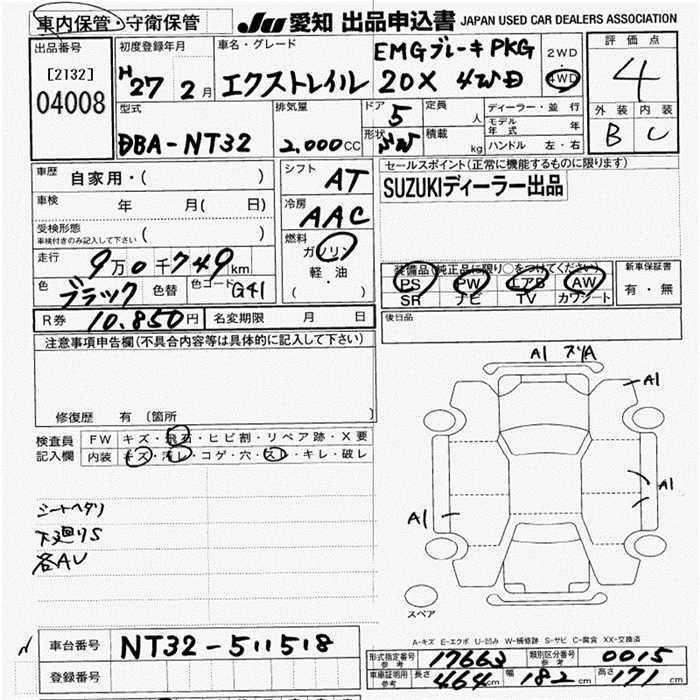 車内保管・守衛保管
JU 愛知 出品申込書 JAPAN USED CAR DEALERS ASSOCIATION
出品番号
[2132]
04008
初度登録年月
H27 2月
車名・グレード
EMGブレーキPKG
エクストレイル 20X 4WD
2WD
4WD
評価点
4
外装 内装
B C
型式
DBA-NT32
排気量
2,000cc
ドア 5
形状
定員 人
積載 kg
ディーラー・並行
モデル年式 年
ハンドル 左・右
車歴 自家用・( )
車検 年 月( 日)
受検形態
車検付きのみ記入して下さい ( )
走行 9万0千749km
色 ブラック 色替 色コード G41
シフト AT
冷房 AAC
燃料
ガソリン
軽・油
( )
セールスポイント(正常に機能するものに限ります)
SUZUKIディーラー出品
装備品(純正品に限り○をつけてください)
PS PW エアB AW
SR ナビ TV カワシート
新車保証書
有・無
R券 10,850円 名変期限 月 日
後日品
注意事項申告欄(不具合内容等は具体的に記入して下さい)
修復歴 有 〔箇所 〕
検査員記入欄
FW キズ・飛石・ヒビ割・リペア跡・X要
内装 キズ・汚レ・コゲ・穴・スレ・キレ・破レ
シートヘタリ
下廻りS
各AU
A1 ズリA
A1
A1
A1
スペア
A-キズ E-エクボ U-凹み W-補修跡 S-サビ C-腐食 XX-交換済
車台番号 NT32-511518
登録番号
形式指定番号 参考 17663 類別区分番号 参考 0015
車庫証明用 参考 長さ 464cm 幅 182cm 高さ 171cm